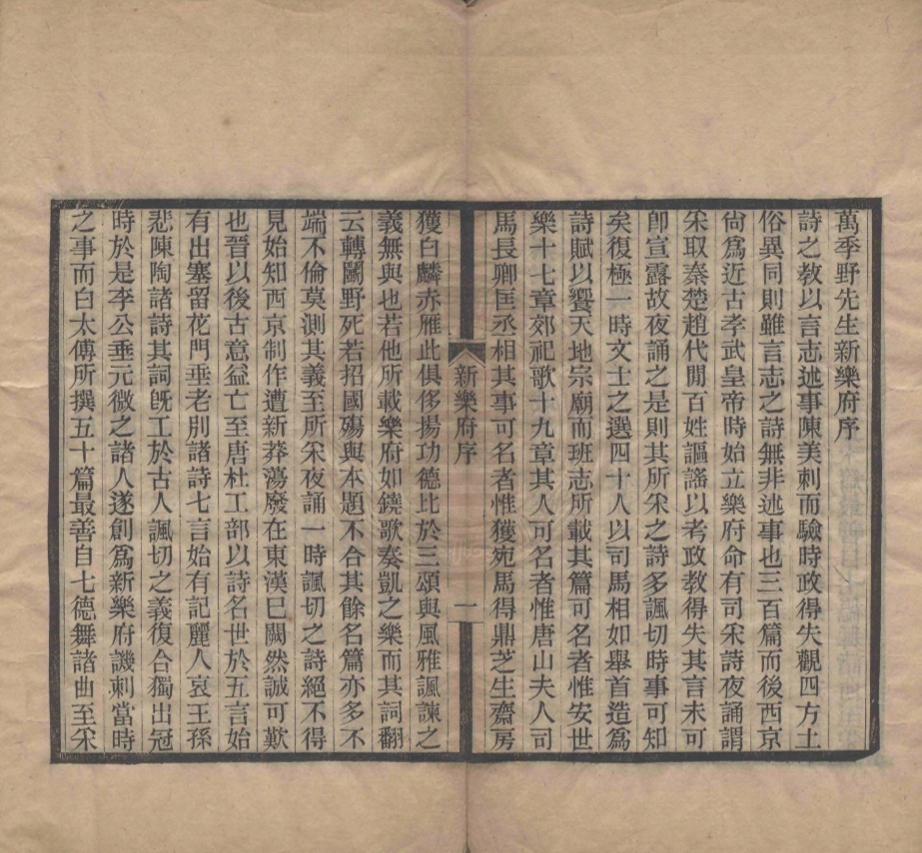 萬季野先生新樂府序
詩之敎以言志述事陳美刺而驗時政得失觀四方土
俗異同則雖言志之詩無非述事也三百篇而後西京
尙爲近古孝武皇帝時始立樂府命有司采詩夜誦謂
采取秦楚趙代閒百姓謳謠以考政教得失其言未可
卽宣露故夜誦之是則其所采之詩多諷切時事可知
矣復極一時文士之選四十人以司馬相如舉首造爲
詩賦以饗天地宗廟而班志所載其篇可名者惟安世
樂十七章郊祀歌十九章其人可名者惟唐山夫人司
馬長卿匡丞相其事可名者惟獲宛馬得鼎芝生齋房
新樂府序
一
獲白麟赤雁此俱侈揚功德比於三頌與風雅諷諫之
義無與也若他所載樂府如鐃歌奏凱之樂而其詞翻
云轉鬭野死若招國殤與本題不合其餘名篇亦多不
端不倫莫測其義至所采夜誦一時諷切之詩絕不得
見始知西京制作遭新莽蕩廢在東漢巳闕然誠可歎
也晉以後古意益亡至唐杜工部以詩名世於五言始
有出塞留花門垂老別諸詩七言始有記麗人哀王孫
悲陳陶諸詩其詞旣工於古人諷切之義復合獨出冠
時於是李公垂元微之諸人遂創爲新樂府譏刺當時
之事而白太傅所撰五十篇最善自七德舞諸曲至采